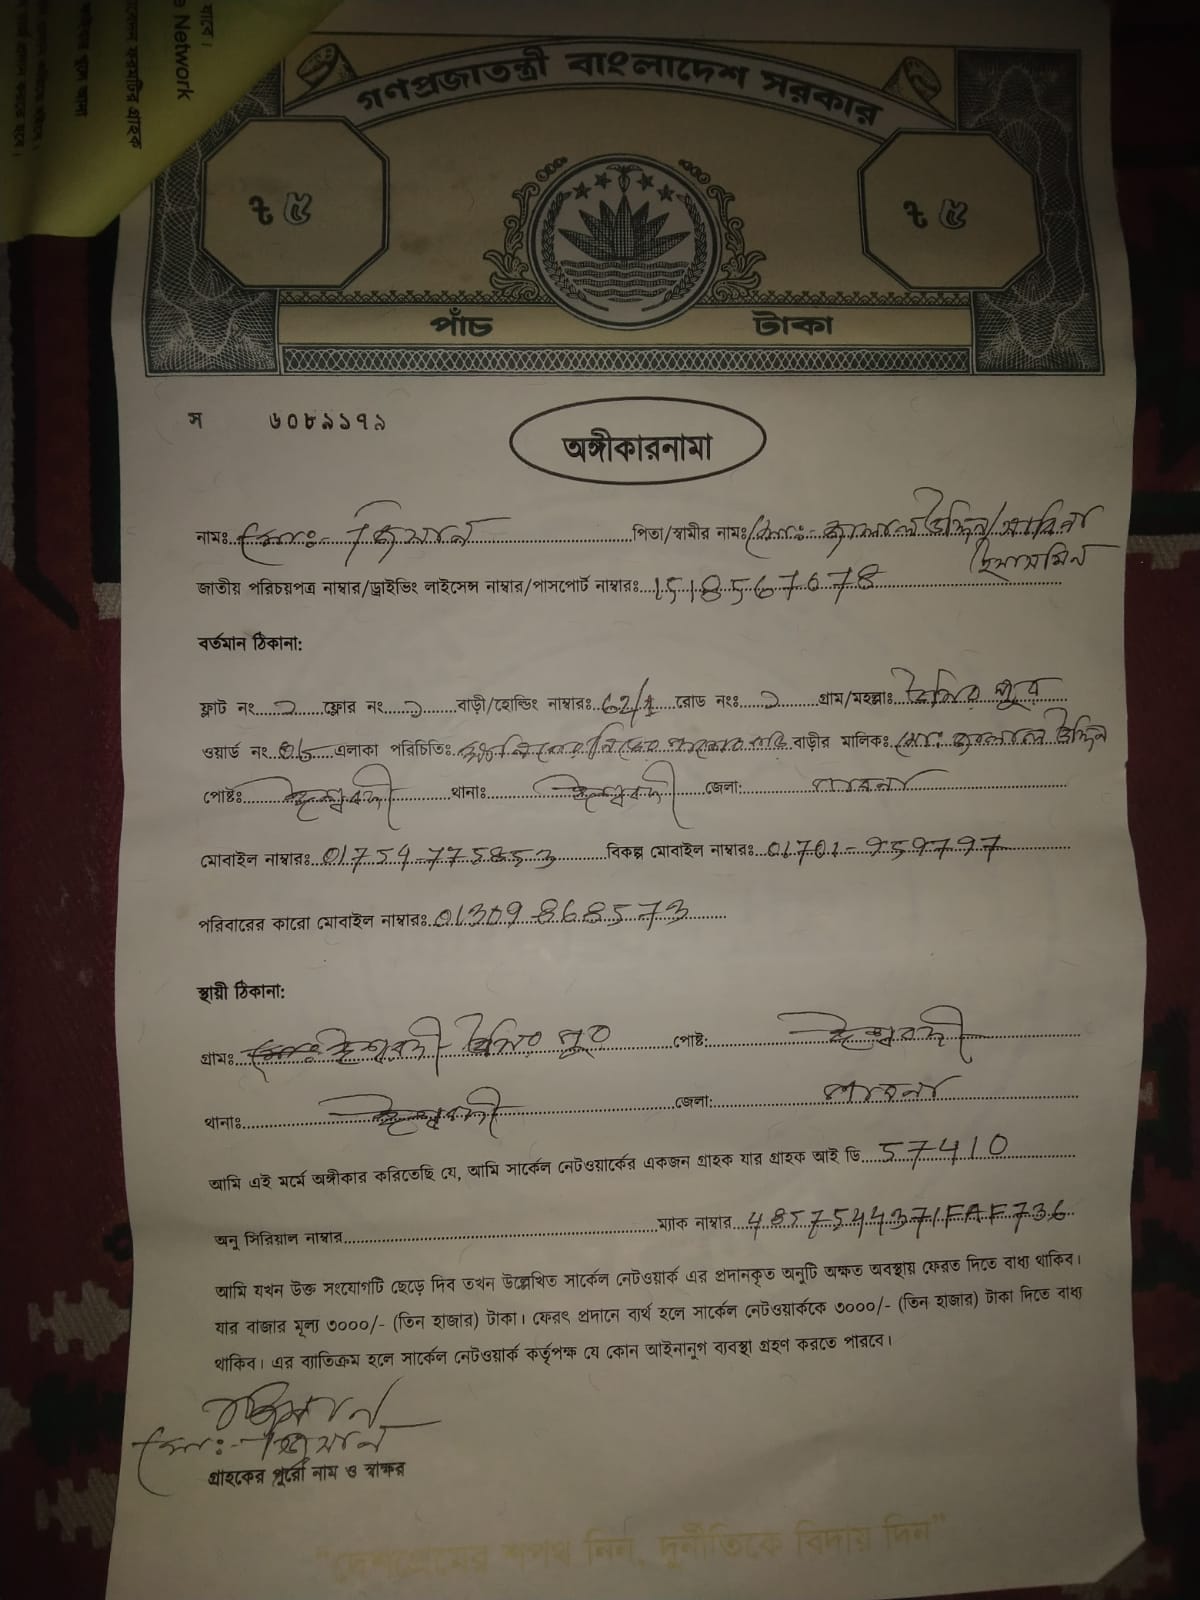 যাবে।
e Network
গণপ্রজাতন্ত্রী বাংলাদেশ সরকার
৳ ৫ ৳ ৫
পাঁচ টাকা
স ৬০৮৯১৭৯
অঙ্গীকারনামা
নামঃ মোঃ- জিসান পিতা/স্বামীর নামঃ মোঃ- জালাল উদ্দিন/সাবিনা
ইয়াসমিন
জাতীয় পরিচয়পত্র নাম্বার/ড্রাইভিং লাইসেন্স নাম্বার/পাসপোর্ট নাম্বারঃ 1518567678
বর্তমান ঠিকানা:
ফ্লাট নং ২ ফ্লোর নং ১ বাড়ী/হোল্ডিং নাম্বারঃ 62/1 রোড নংঃ ১ গ্রাম/মহল্লাঃ
ওয়ার্ড নং 05 এলাকা পরিচিতিঃ বাড়ীর মালিকঃ মোঃ জালাল উদ্দিন
পোষ্টঃ ঈশ্বরদী থানাঃ ঈশ্বরদী জেলা: পাবনা
মোবাইল নাম্বারঃ 01754-775853 বিকল্প মোবাইল নাম্বারঃ 01701-959797
পরিবারের কারো মোবাইল নাম্বারঃ 01309-868573
স্থায়ী ঠিকানা:
গ্রামঃ ঈশ্বরদী পোষ্ট: ঈশ্বরদী
থানাঃ ঈশ্বরদী জেলা: পাবনা
আমি এই মর্মে অঙ্গীকার করিতেছি যে, আমি সার্কেল নেটওয়ার্কের একজন গ্রাহক যার গ্রাহক আই ডি 57410
অনু সিরিয়াল নাম্বার ম্যাক নাম্বার 4857544371FAF736
আমি যখন উক্ত সংযোগটি ছেড়ে দিব তখন উল্লেখিত সার্কেল নেটওয়ার্ক এর প্রদানকৃত অনুটি অক্ষত অবস্থায় ফেরত দিতে বাধ্য থাকিব।
যার বাজার মূল্য ৩০০০/- (তিন হাজার) টাকা। ফেরৎ প্রদানে ব্যর্থ হলে সার্কেল নেটওয়ার্ককে ৩০০০/- (তিন হাজার) টাকা দিতে বাধ্য
থাকিব। এর ব্যাতিক্রম হলে সার্কেল নেটওয়ার্ক কর্তৃপক্ষ যে কোন আইনানুগ ব্যবস্থা গ্রহণ করতে পারবে।
জিসান
মোঃ- জিসান
গ্রাহকের পুরো নাম ও স্বাক্ষর
“দেশপ্রেমের শপথ নিন, দুর্নীতিকে বিদায় দিন”